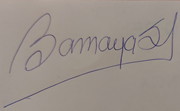 Bamaya S